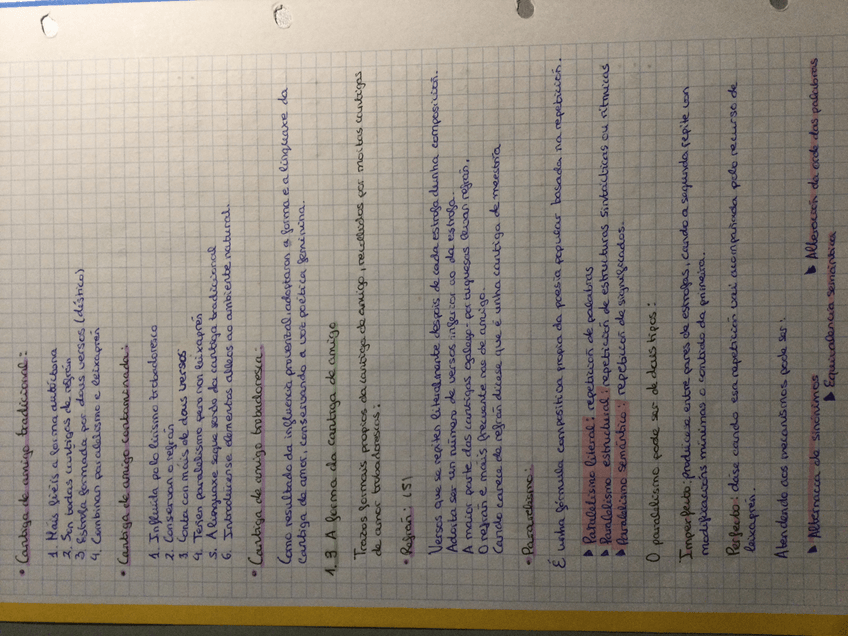 • Cantiga de amigo tradicional:
1. Máis fiéis a forma autóctona
2. Son todas cantigas de refrán
3. Estrofa formada por dous versos (dístico)
4. Combinan paralelismo e leixaprén
• Cantiga de amigo contaminada:
1. Influída polo lirismo trobadoresco
2. Conservan o refrán
3. Conta con máis de dous versos
4. Teñen paralelismo pero non leixaprén
5. A linguaxe segue sendo da cantiga tradicional
6. Introdúcense elementos alleos ao ambiente natural.
• Cantiga de amigo trobadoresca:
Como resultado da influencia provenzal, adoptaron a forma e a linguaxe da
cantiga de amor, conservando a voz poética feminina.
1.3 A forma da cantiga de amigo
Trazos formais propios da cantiga de amigo, recollidos por moitas cantigas
de amor trobadorescas:
• Refrán: (5)
Versos que se repiten literalmente despois de cada estrofa dunha composición.
Adoita ser un número de versos inferior ao da estrofa.
A maior parte das cantigas galego-portuguesas levan refrán.
O refrán é máis frecuente nas de amigo.
Cando carece de refrán dícese que é unha cantiga de mestría
• Paralelismo:
É unha fórmula compositiva propia da poesía popular baseada na repetición.
▶ Paralelismo literal: repetición de palabras
▶ Paralelismo estrutural: repetición de estruturas sintácticas ou rítmicas
▶ Paralelismo semántico: repetición de significados.
O paralelismo pode ser de dous tipos:
Imperfecto: prodúcese entre pares de estrofas, cando a segunda repite con
modificacións mínimas o contido da primeira.
Perfecto: dáse cando esa repetición vai acompañada polo recurso de
leixaprén.
Atendendo aos mecanismos pode ser:
▶ Alternancia de sinónimos ▶ Alteración da orde das palabras
▶ Equivalencia semántica